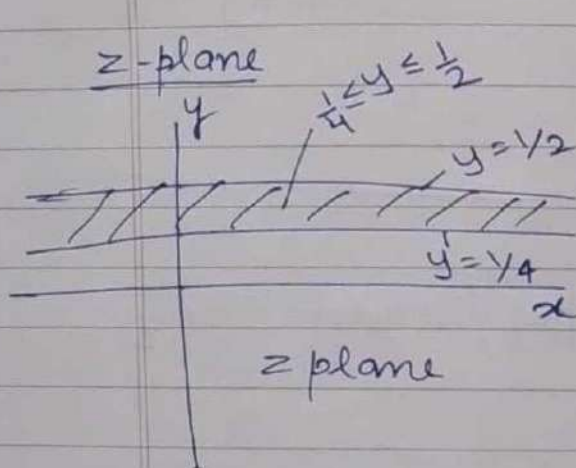 z-plane
y
1/4 ≤ y ≤ 1/2
y = 1/2
y = 1/4
x
z plane